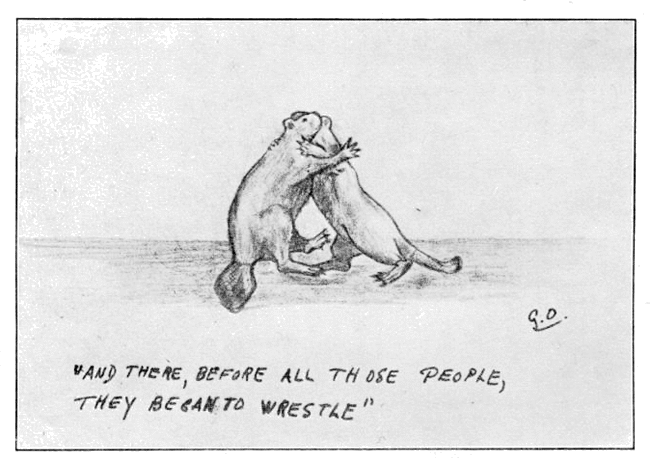 G.O.
"AND THERE, BEFORE ALL THOSE PEOPLE,
THEY BEGAN TO WRESTLE"